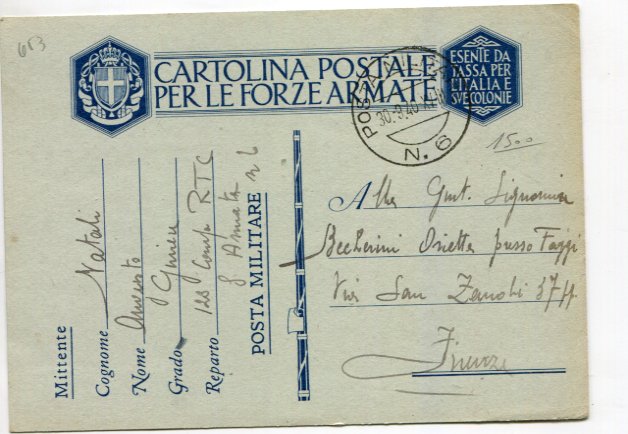 613
CARTOLINA POSTALE
PER LE FORZE ARMATE
ESENTE DA
TASSA PER
L'ITALIA E
SVE COLONIE
POSTA MILITARE
30.9.40
N. 6
1500
Alla Gent. Signorina
Becherini Orietta presso Fazzi
Via San Zanobi 37
Firenze
Mittente
Cognome Natali
Nome
Grado Geniere
Reparto 122 Comp. RTC
8 Armata n 6
POSTA MILITARE